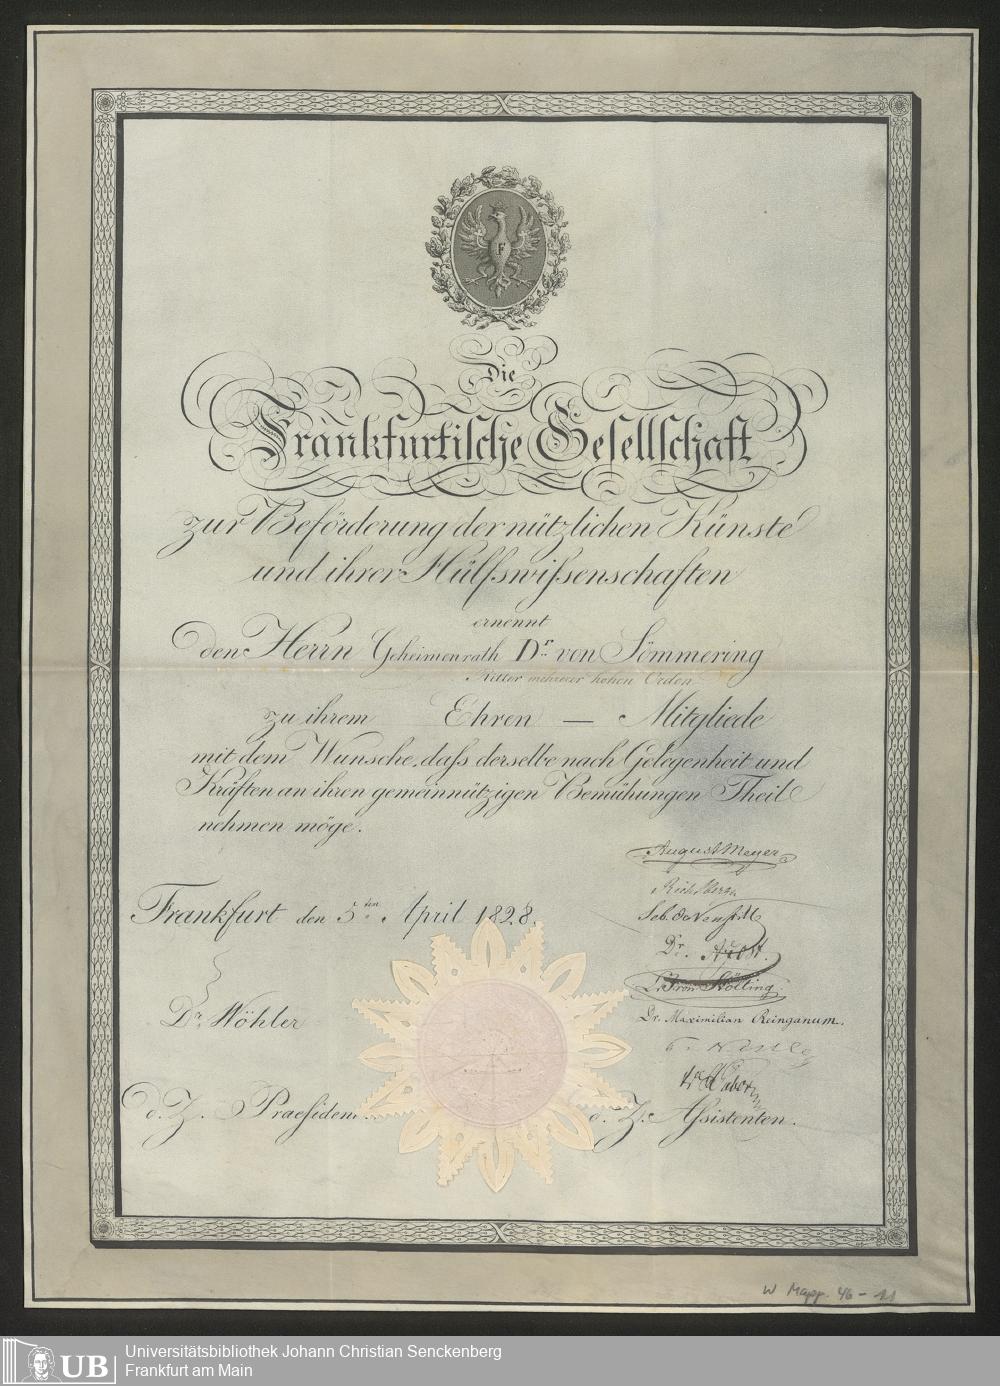 F
Die
Frankfurtische Gesellschaft
zur Beförderung der nützlichen Künste
und ihrer Hülfswißenschaften
ernennt
den Herrn Geheimenrath Dr. von Sömmering
Ritter mehrerer hohen Orden
zu ihrem Ehren — Mitgliede
mit dem Wunsche, daß derselbe nach Gelegenheit und
Kräften an ihren gemeinnützigen Bemühungen Theil
nehmen möge.
August Meyer
Frankfurt den 5ten April 1828.
Dr.
Dr. Wöhler
Dr. Maximilian Reinganum.
d. Z. Praesident
d. Z. Assistenten.
W Mapp. 46 - 11
UB
Universitätsbibliothek Johann Christian Senckenberg
Frankfurt am Main